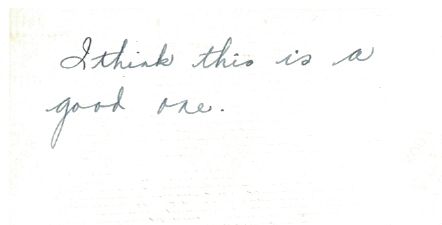 I think this is a
good one.